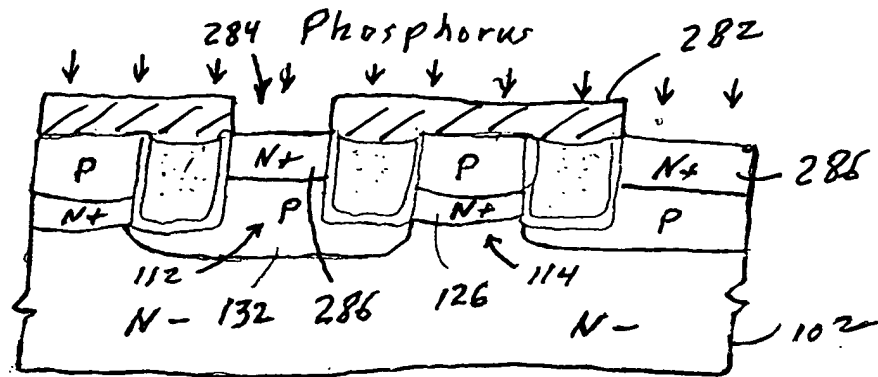 284 Phosphorus 282
P N+ P N+ 286
N+ P N+ P
112 132 286 126 114
N- N- 102